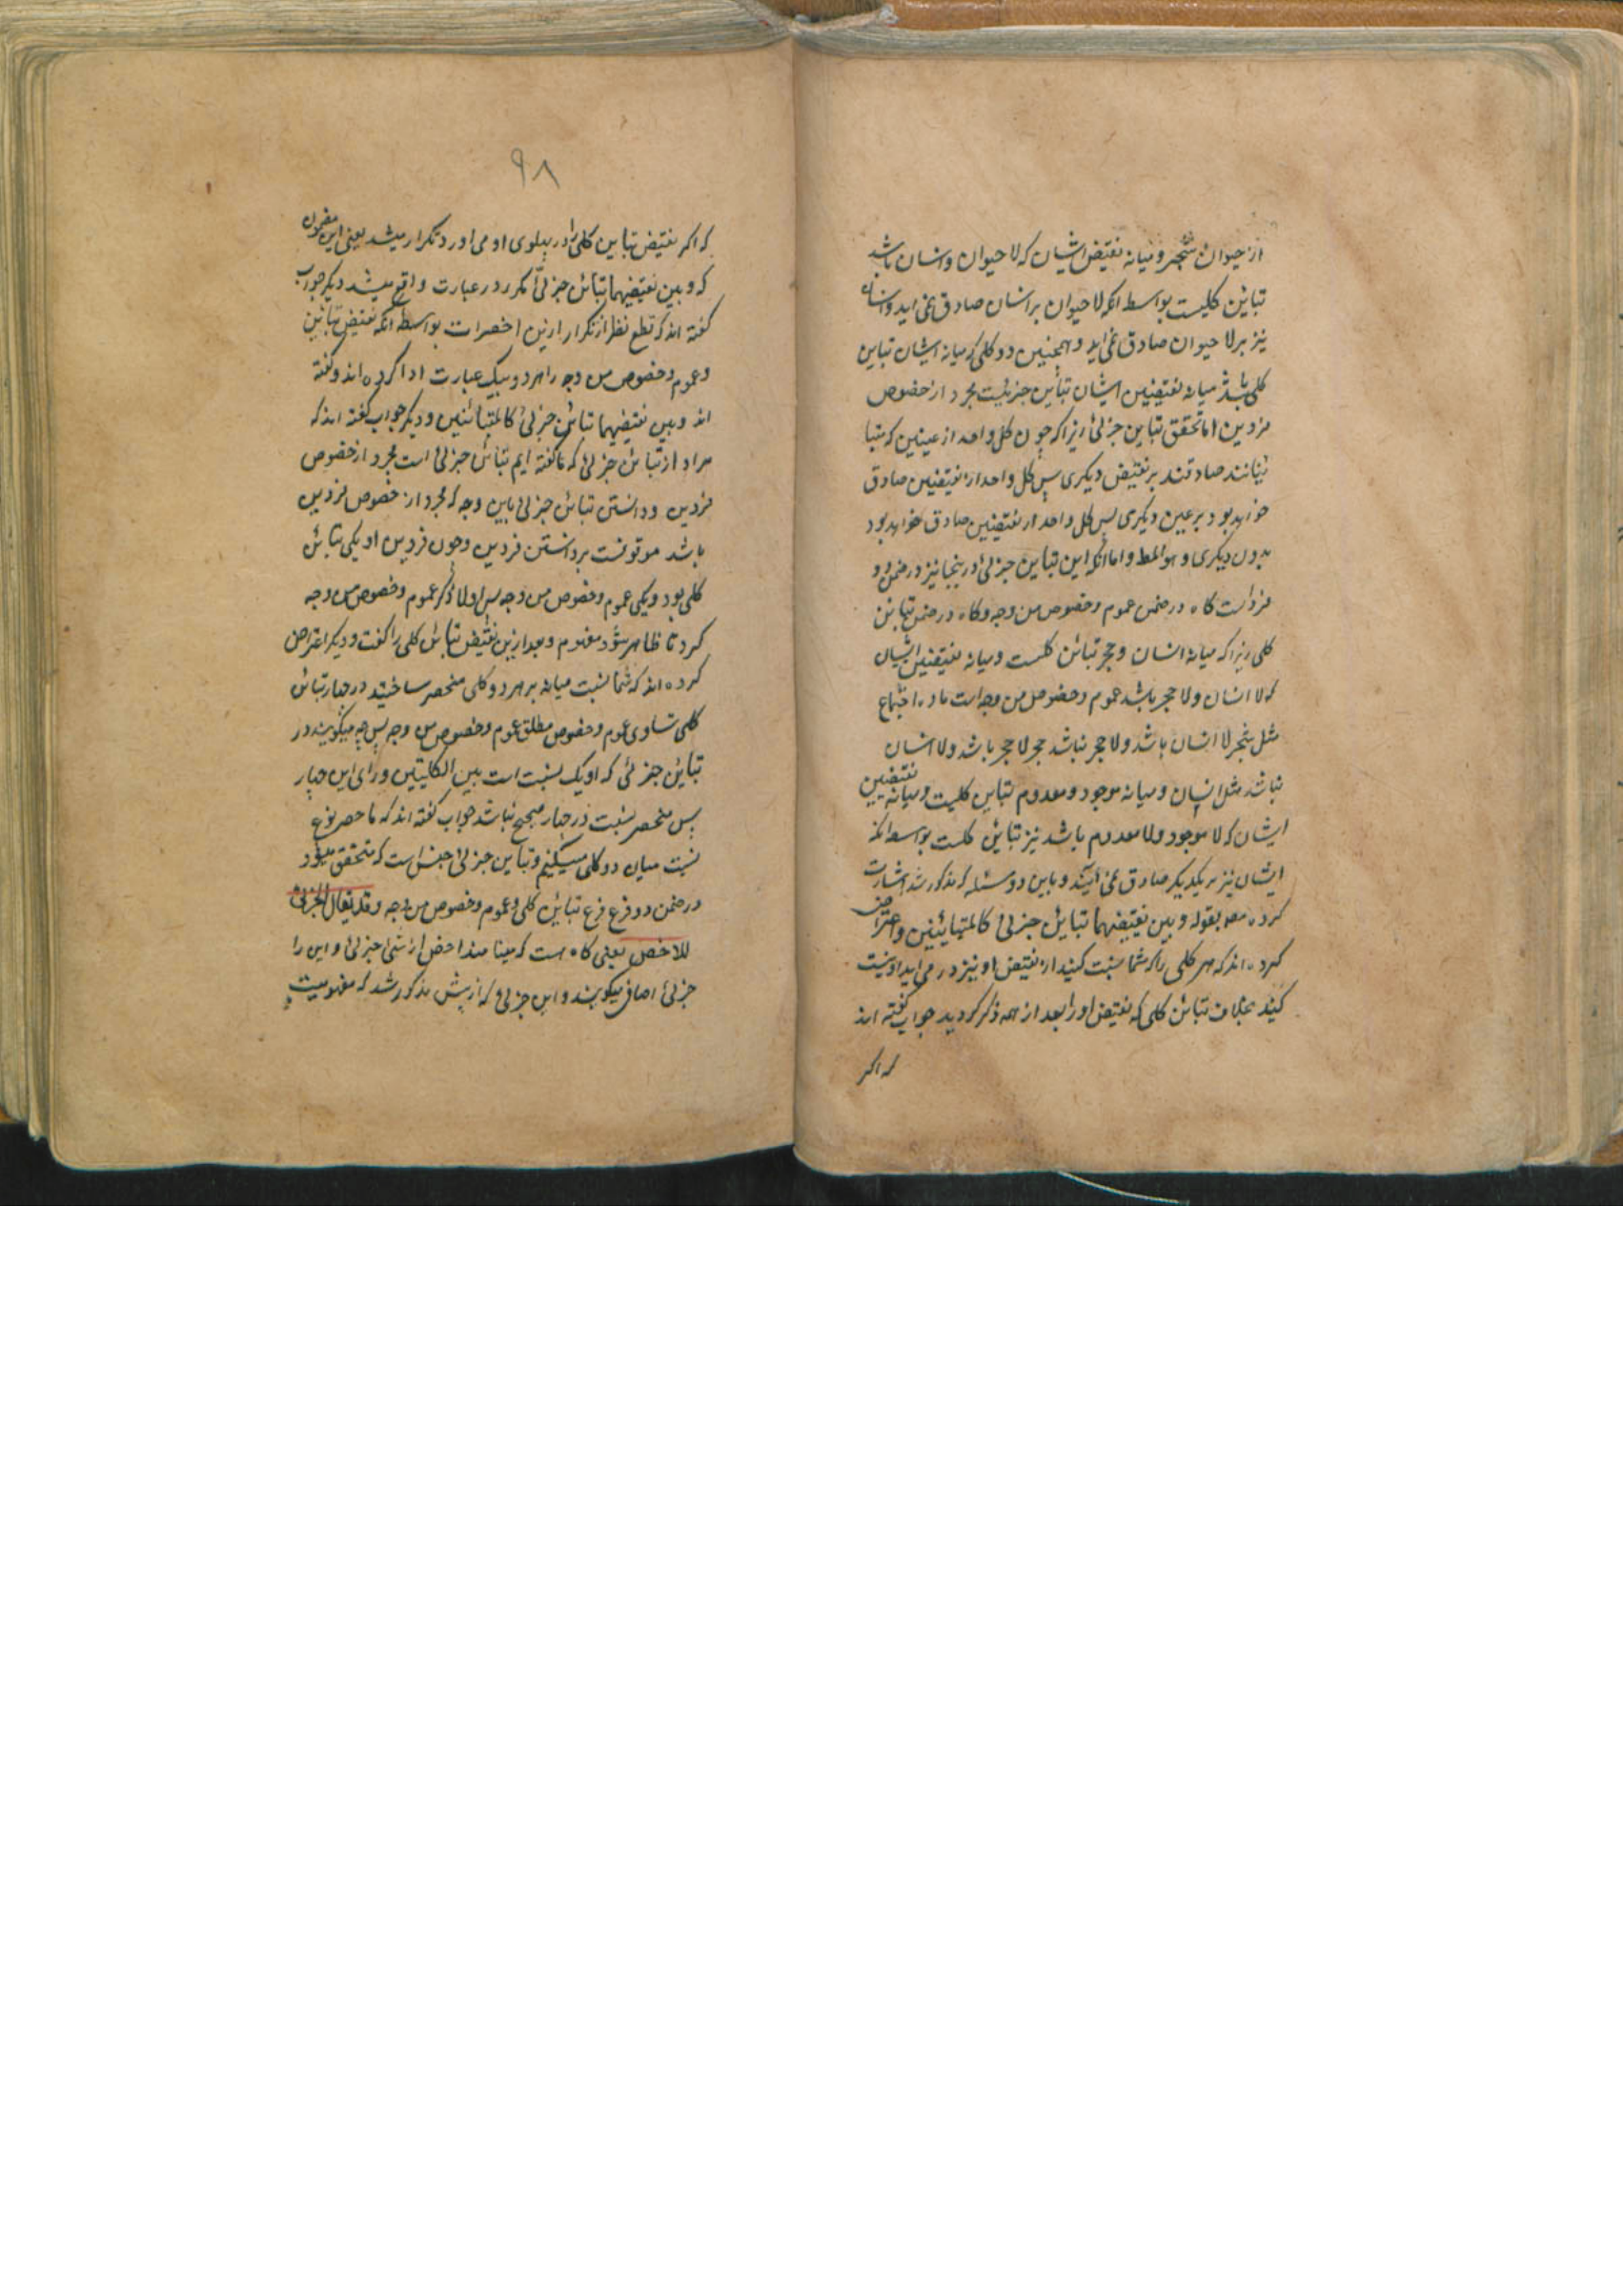 از حیوان شجر و میانه نقیض ایشان که لا حیوان و انسان باشد
تباین کلیست بواسطه انکه لا حیوان بر انسان صادق نمی اید و انسان
نیز بر لا حیوان صادق نمی اید و همچنین دو کلی که میانه ایشان تباین
کلی باشد میانه نقیضین ایشان تباین جزئیست مجرد از خصوص
فردین اما تحقق تباین جزئی زیرا که چون کل واحد از عینین که متبا
ینانند صادقند بر نقیض دیگری پس کل واحد از نقیضین صادق
خواهد بود بر عین دیگری پس کل واحد از نقیضین صادق خواهد بود
بدون دیگری و هو المط و اما انکه این تباین جزئی در ینجا نیز در ضمن دو
فردست کاه در ضمن عموم و خصوص من وجه و کاه در ضمن تباین
کلی زیرا که میانه انسان و حجر تباین کلیست و میانه نقیضین ایشان
که لا انسان و لا حجر باشد عموم و خصوص من وجه است ماده اجتماع
مثل شجر لا انسان باشد و لا حجر نباشد حجر لا حجر باشد و لا انسان
نباشد مثل انسان و میانه موجود و معدوم تباین کلیست و میانه نقیضین
ایشان که لا موجود و لا معدوم باشد نیز تباین کلیست بواسطه انکه
ایشان نیز بر یکدیکر صادق نمی آیند و باین دو مسئله که مذکور شد اشارت
کرده مصه بقوله و بین نقیضیهما تباین جزئی کالمتباینین و اعتراض
کرده اند که هر کلی را که شما نسبت کنید از نقیض او نیز در می اید او نسبت
کنید بخلاف تباین کلی که نقیض او را بعد از همه ذکر کردید جواب گفته اند
که اکر
۹۸
که اکر نقیض تباین کلی را در پهلوی او می اورد تکرار میشد یعنی این مضمون
که و بین نقیضیهما تباین جزئی مکرر در عبارت واقع میشد دیکر جواب
گفته اند که قطع نظر از تکرار ازین اخصرات بواسطه انکه نقیض تباین
و عموم و خصوص من وجه را هر دو بیک عبارت ادا کرده اند و گفته
اند و بین نقیضیهما تباین جزئی کالمتباینین و دیکر جواب گفته اند که
مراد از تباین جزئی که ما گفته ایم تباین جزئی است مجرد از خصوص
فردین و دانستن تباین جزئی باین وجه که مجرد از خصوص فردین
باشد موقوفست بر دانستن فردین و چون فردین او یکی تباین
کلی بود و یکی عموم و خصوص من وجه پس اولا ذکر عموم و خصوص من وجه
کرد تا ظاهر شود مفهوم و بعد ازین نقیض تباین کلی را گفت و دیکر اعتراض
کرده اند که شما نسبت میانه بر هر دو کلی منحصر ساختید در چهار تباین
کلی تساوی عموم و خصوص مطلق عموم و خصوص من وجه پس چه میگویند در
تباین جزئی که او یک نسبت است بین الکلیتین ورای این چهار
پس منحصر نسبت در چهار صحیح نباشد جواب گفته اند که ما حصر نوع
نسبت میان دو کلی میکنیم و تباین جزئی جنس است که متحقق میشود
در ضمن دو فرع فرع تباین کلی و عموم و خصوص من وجه وقد یقال الجزئی
للاخص یعنی کاه هست که مینامند اخص از شئ جزئی و این را
جزئی اضافی میگویند و این جزئی که از پیش مذکور شد که مفهومیست